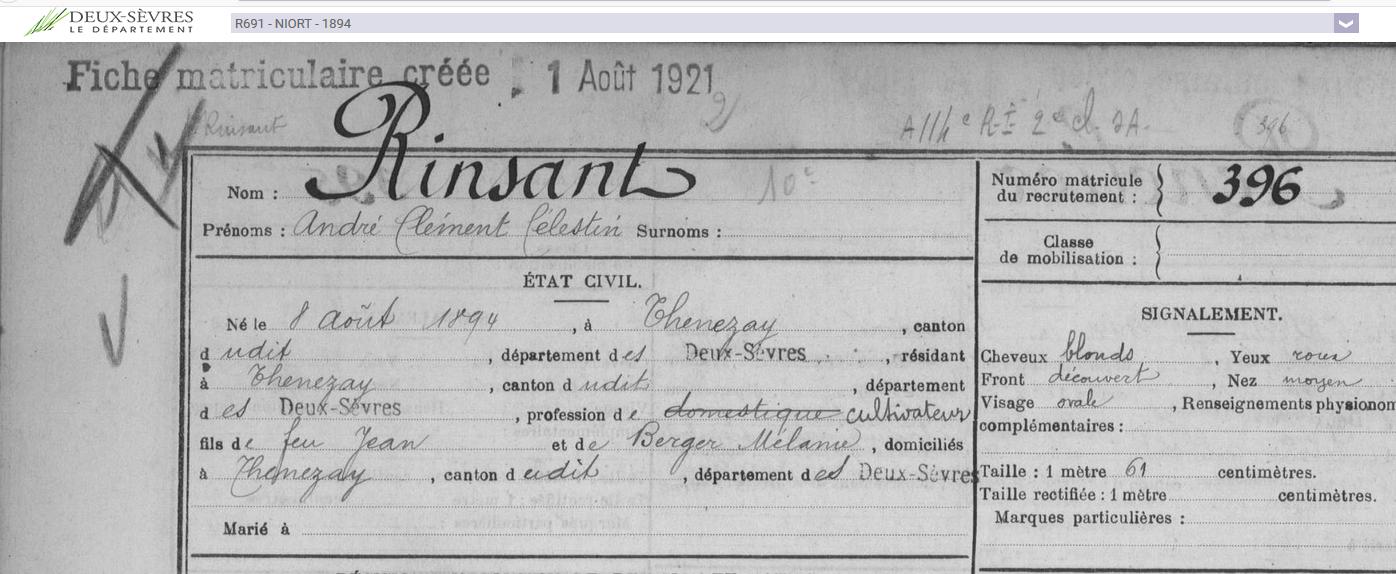 DEUX-SÈVRES
LE DÉPARTEMENT
R691 - NIORT - 1894
Fiche matriculaire créée : 1 Août 1921
Rinsant
396
Nom : Rinsant
10e
Numéro matricule
du recrutement : 396
Prénoms : André Clément Célestin Surnoms :
Classe
de mobilisation :
ÉTAT CIVIL.
Né le 8 août 1894, à Thenezay, canton
dudit, département des Deux-Sèvres, résidant
à Thenezay, canton dudit, département
des Deux-Sèvres, profession de domestique cultivateur
fils de feu Jean et de Berger Mélanie, domiciliés
à Thenezay, canton dudit, département des Deux-Sèvres
Marié à
SIGNALEMENT.
Cheveux blonds, Yeux roux
Front découvert, Nez moyen
Visage ovale, Renseignements physionom
complémentaires :
Taille : 1 mètre 61 centimètres.
Taille rectifiée : 1 mètre centimètres.
Marques particulières :